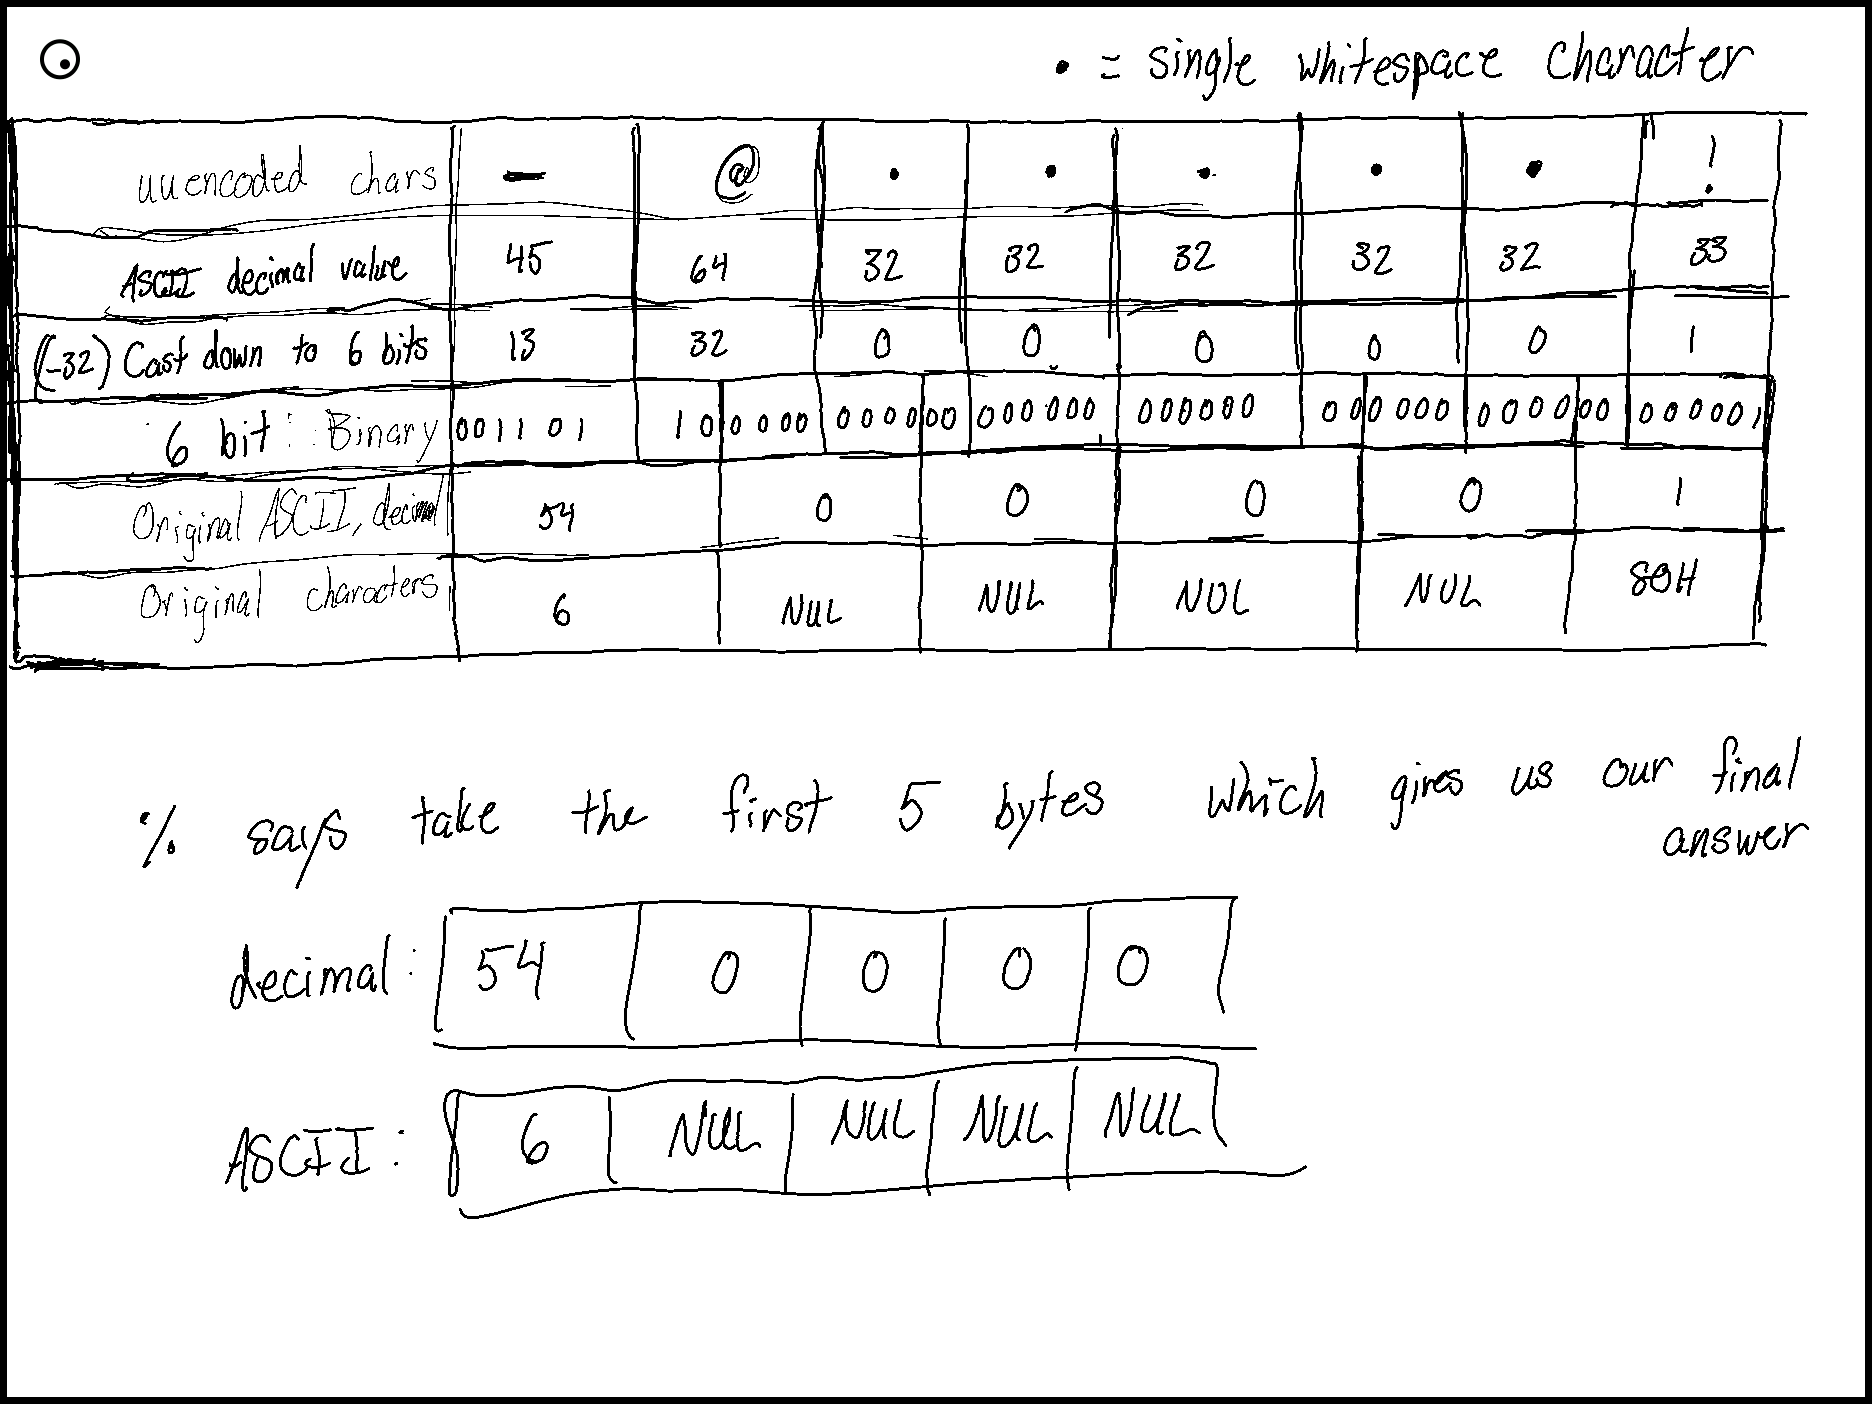 • = single whitespace character
uuencoded chars - @ • • • • • !
ASCII decimal value 45 64 32 32 32 32 32 33
(-32) Cast down to 6 bits 13 32 0 0 0 0 0 1
6 bit: Binary 001101 100000 000000 000000 000000 000000 000000 000001
Original ASCII, decimal 54 0 0 0 0 1
Original characters 6 NUL NUL NUL NUL SOH
% says take the first 5 bytes which gives us our final
answer
decimal: 54 0 0 0 0
ASCII: 6 NUL NUL NUL NUL